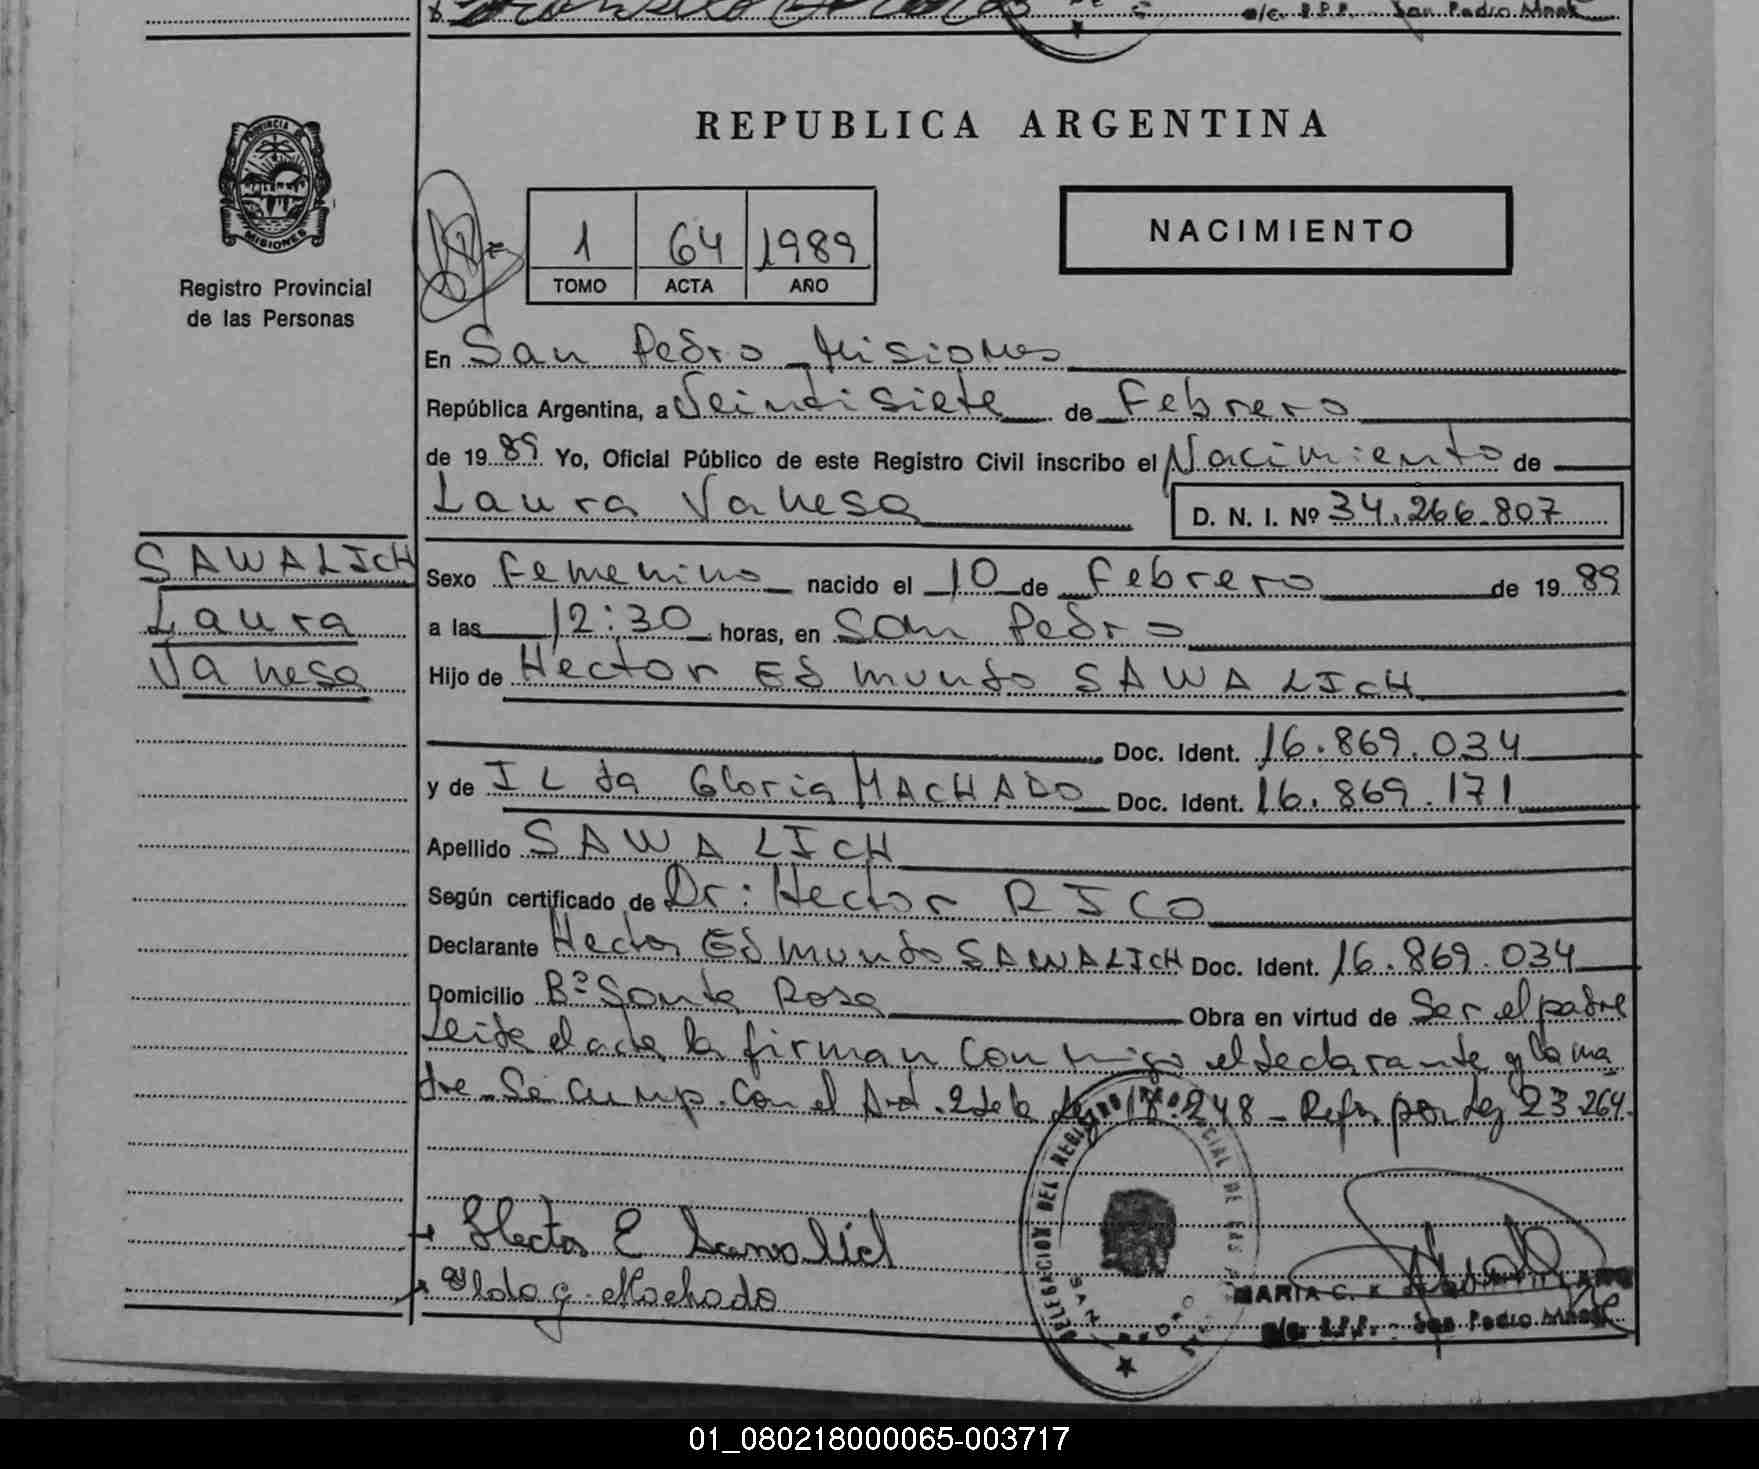 S/C. R.P.P. San Pedro Mnes
REPUBLICA ARGENTINA
PROVINCIA DE
MISIONES
Registro Provincial
de las Personas
1 64 1989
TOMO ACTA AÑO
NACIMIENTO
En San Pedro Misiones
República Argentina, a Veintisiete de Febrero
de 1989 Yo, Oficial Público de este Registro Civil inscribo el Nacimiento de
Laura Vanesa D. N. I. Nº 34.266.807
SAWALICH
Laura
Vanesa
Sexo Femenino nacido el 10 de Febrero de 1989
a las 12:30 horas, en San Pedro
Hijo de Hector Edmundo SAWALICH
Doc. Ident. 16.869.034
y de ILda Gloria MACHADO Doc. Ident. 16.869.171
Apellido SAWALICH
Según certificado de Dr: Hector RICO
Declarante Hector Edmundo SAWALICH Doc. Ident. 16.869.034
Domicilio Bº Santa Rosa Obra en virtud de Ser el padre
Leida el acta la firman conmigo el declarante y la ma
dre - Se cump. con el Art. 2 de la Ley 18.248 - Ref. por Ley 23.264.
DELEGACION DEL REGISTRO PROVINCIAL DE LAS
SAN PEDRO
Hector E Sawalich
Ilda G. Machado
MARIA C. K.
S/C. R.P.P. - San Pedro Mnes
01_080218000065-003717